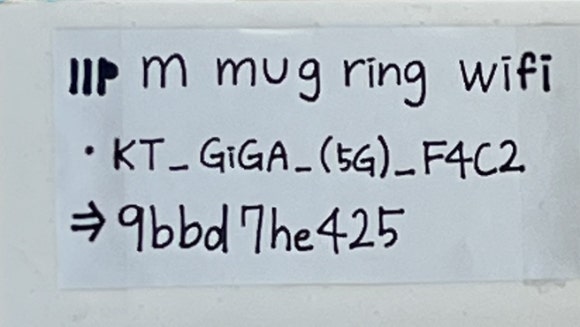 m mug ring wifi
· KT_GiGA_(5G)_F4C2
⇒ 9bbd7he425